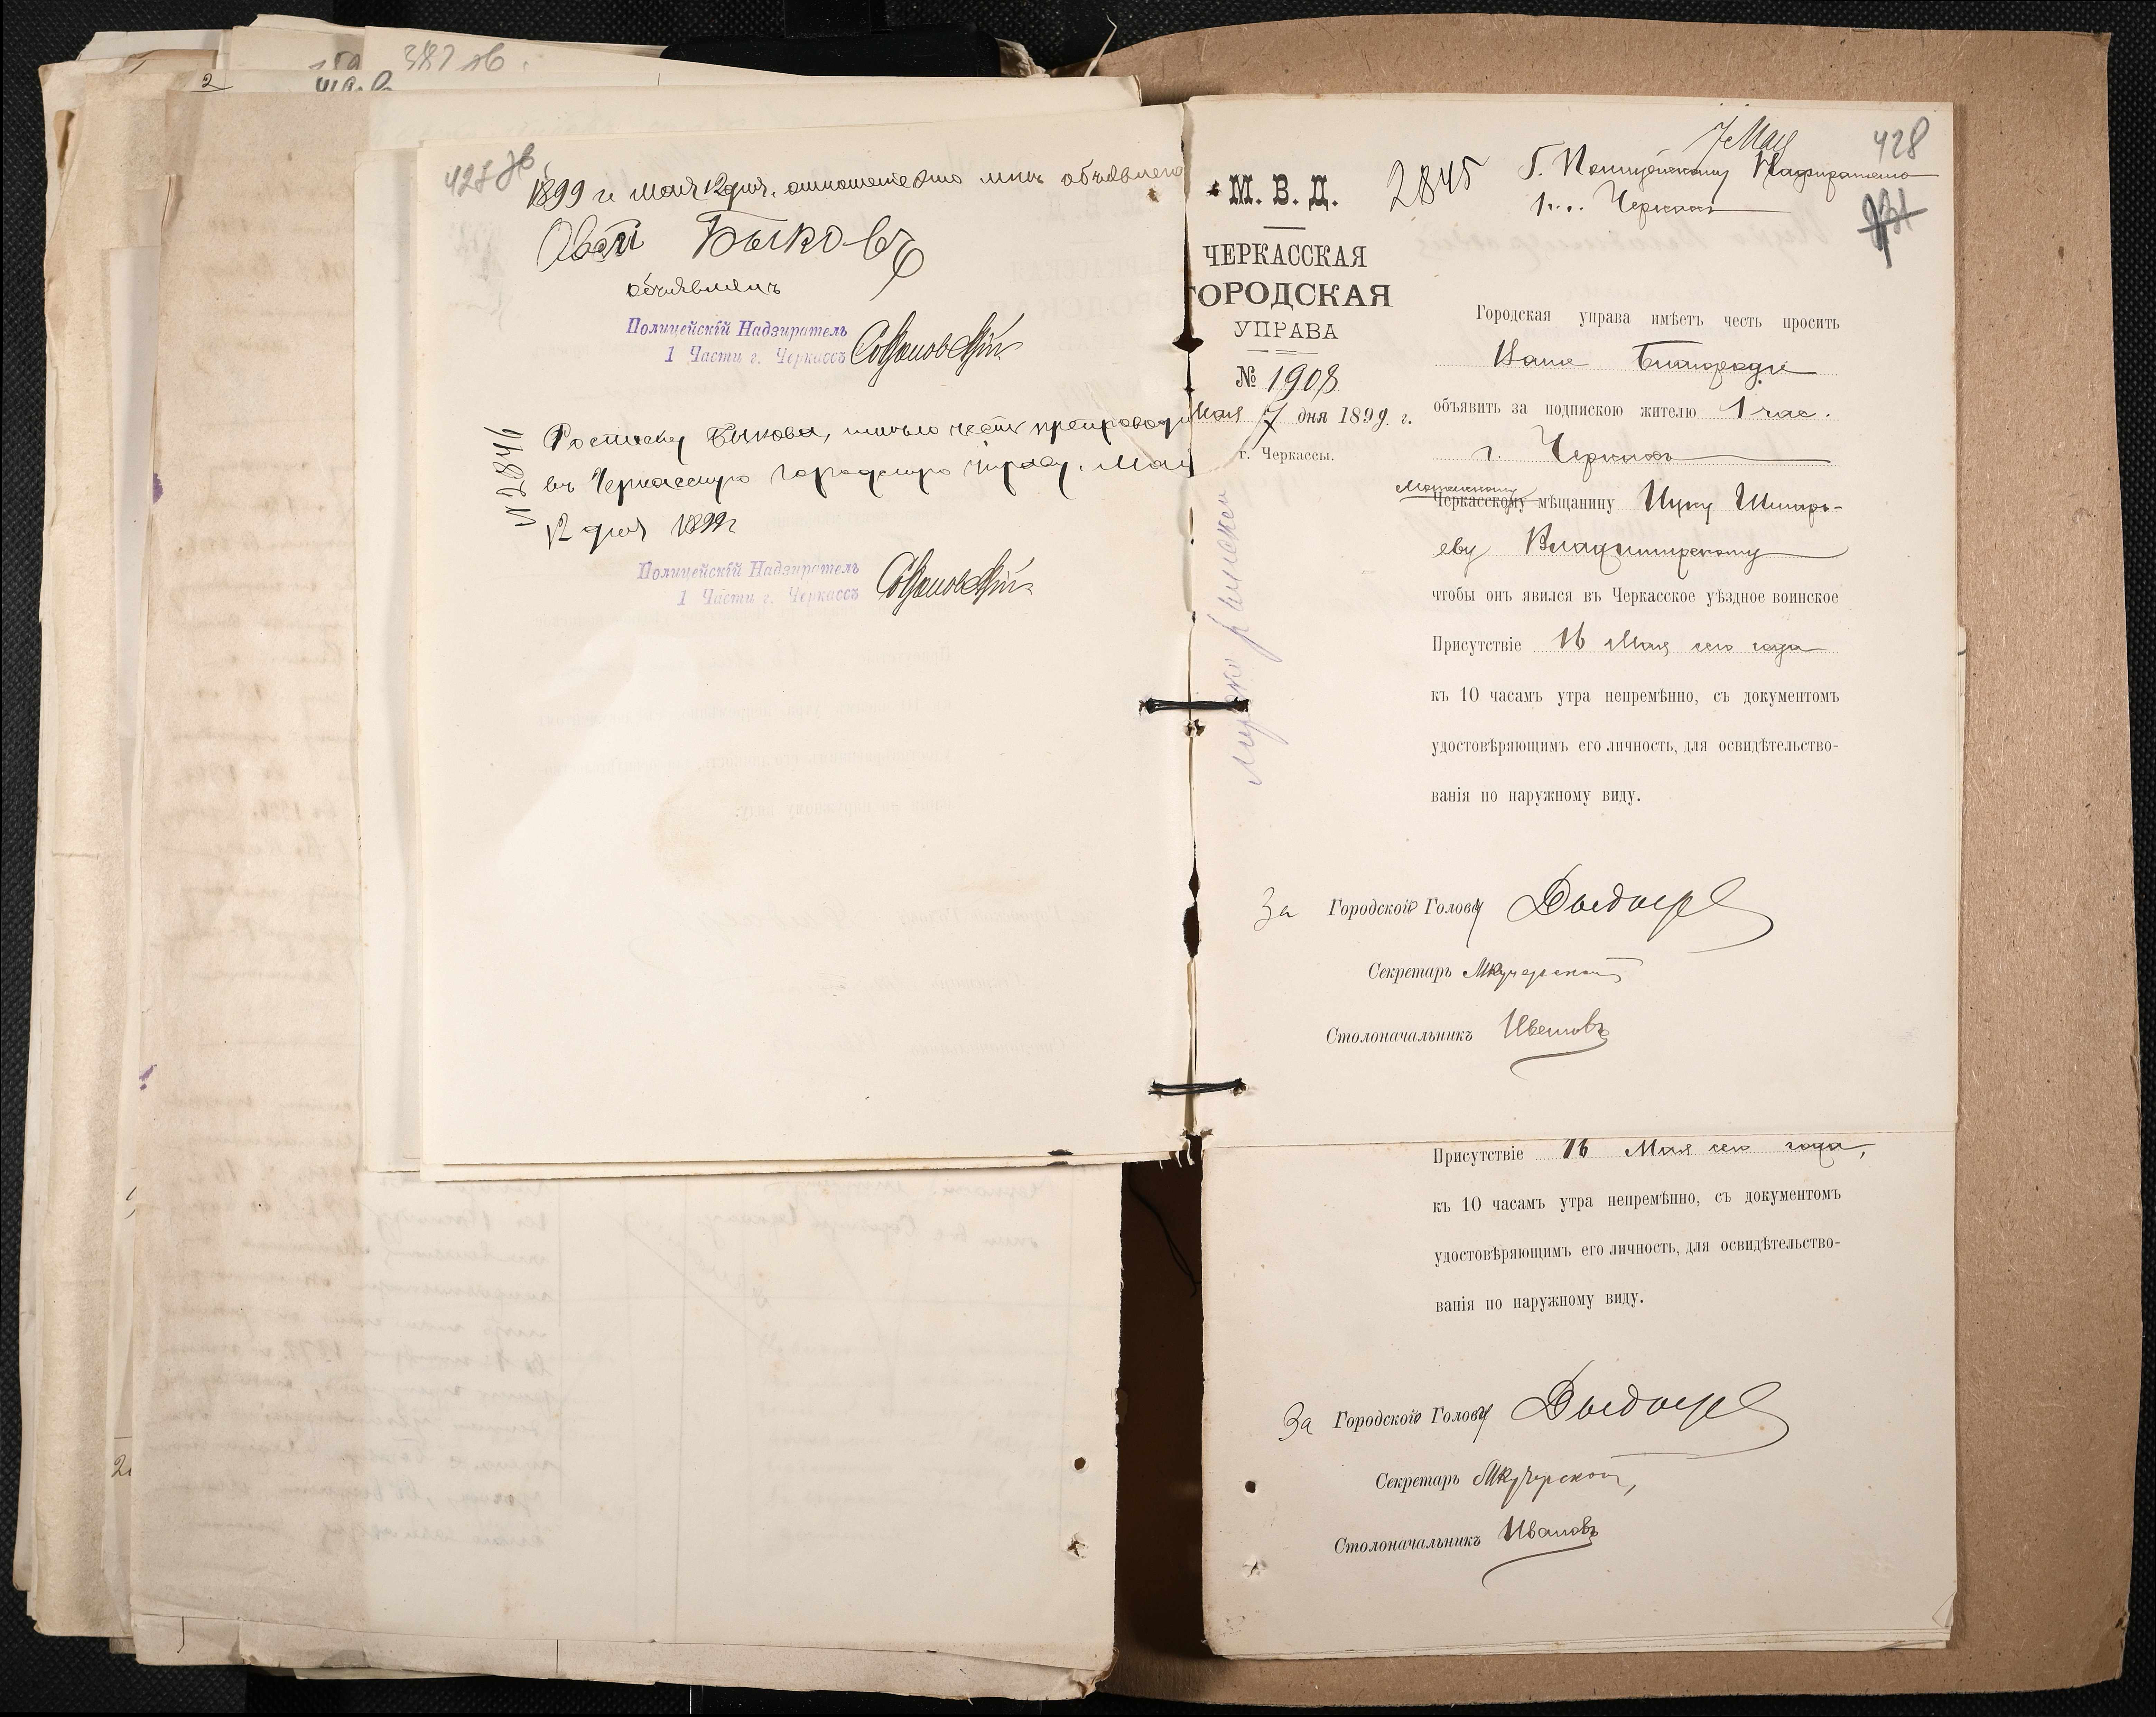 387 об.
2
1899 г. мая 12 дня, отношение это мне объявлено
Овсей Быковъ
объявилъ
Полицейскій Надзиратель
1 Части г. Черкассъ
№ 2844
Росписку Быкова, имѣю честь препроводить
въ Черкасскую городскую управу. Мая
12 дня 1899 г
Полицейскій Надзиратель
1 Части г. Черкассъ
7 Мая
428
2845
Г. Полицейскому Надзирателю
1 ч. г. Черкассъ
М. В. Д.
ЧЕРКАССКАЯ
ГОРОДСКАЯ
УПРАВА
№ 1908
Мая 7 дня 1899. г.
г. Черкассы.
Городская управа имѣетъ честь просить
Ваше Благородіе
объявить за подпискою жителю 1 час.
г. Черкассъ
Черкасскому мѣщанину Ицку Шмарь-
еву Владимирскому
чтобы онъ явился въ Черкасское уѣздное воинское
Присутствіе 16 Мая сего года
къ 10 часамъ утра непремѣнно, съ документомъ
удостовѣряющимъ его личность, для освидѣтельство-
ванія по наружному виду.
За Городского Голову
Секретарь Мкучерскій
Столоначальникъ Ивановъ
Присутствіе 16 Мая сего года,
къ 10 часамъ утра непремѣнно, съ документомъ
удостовѣряющимъ его личность, для освидѣтельство-
ванія по наружному виду.
За Городского Голову
Секретарь Мкучерскій
Столоначальникъ Ивановъ